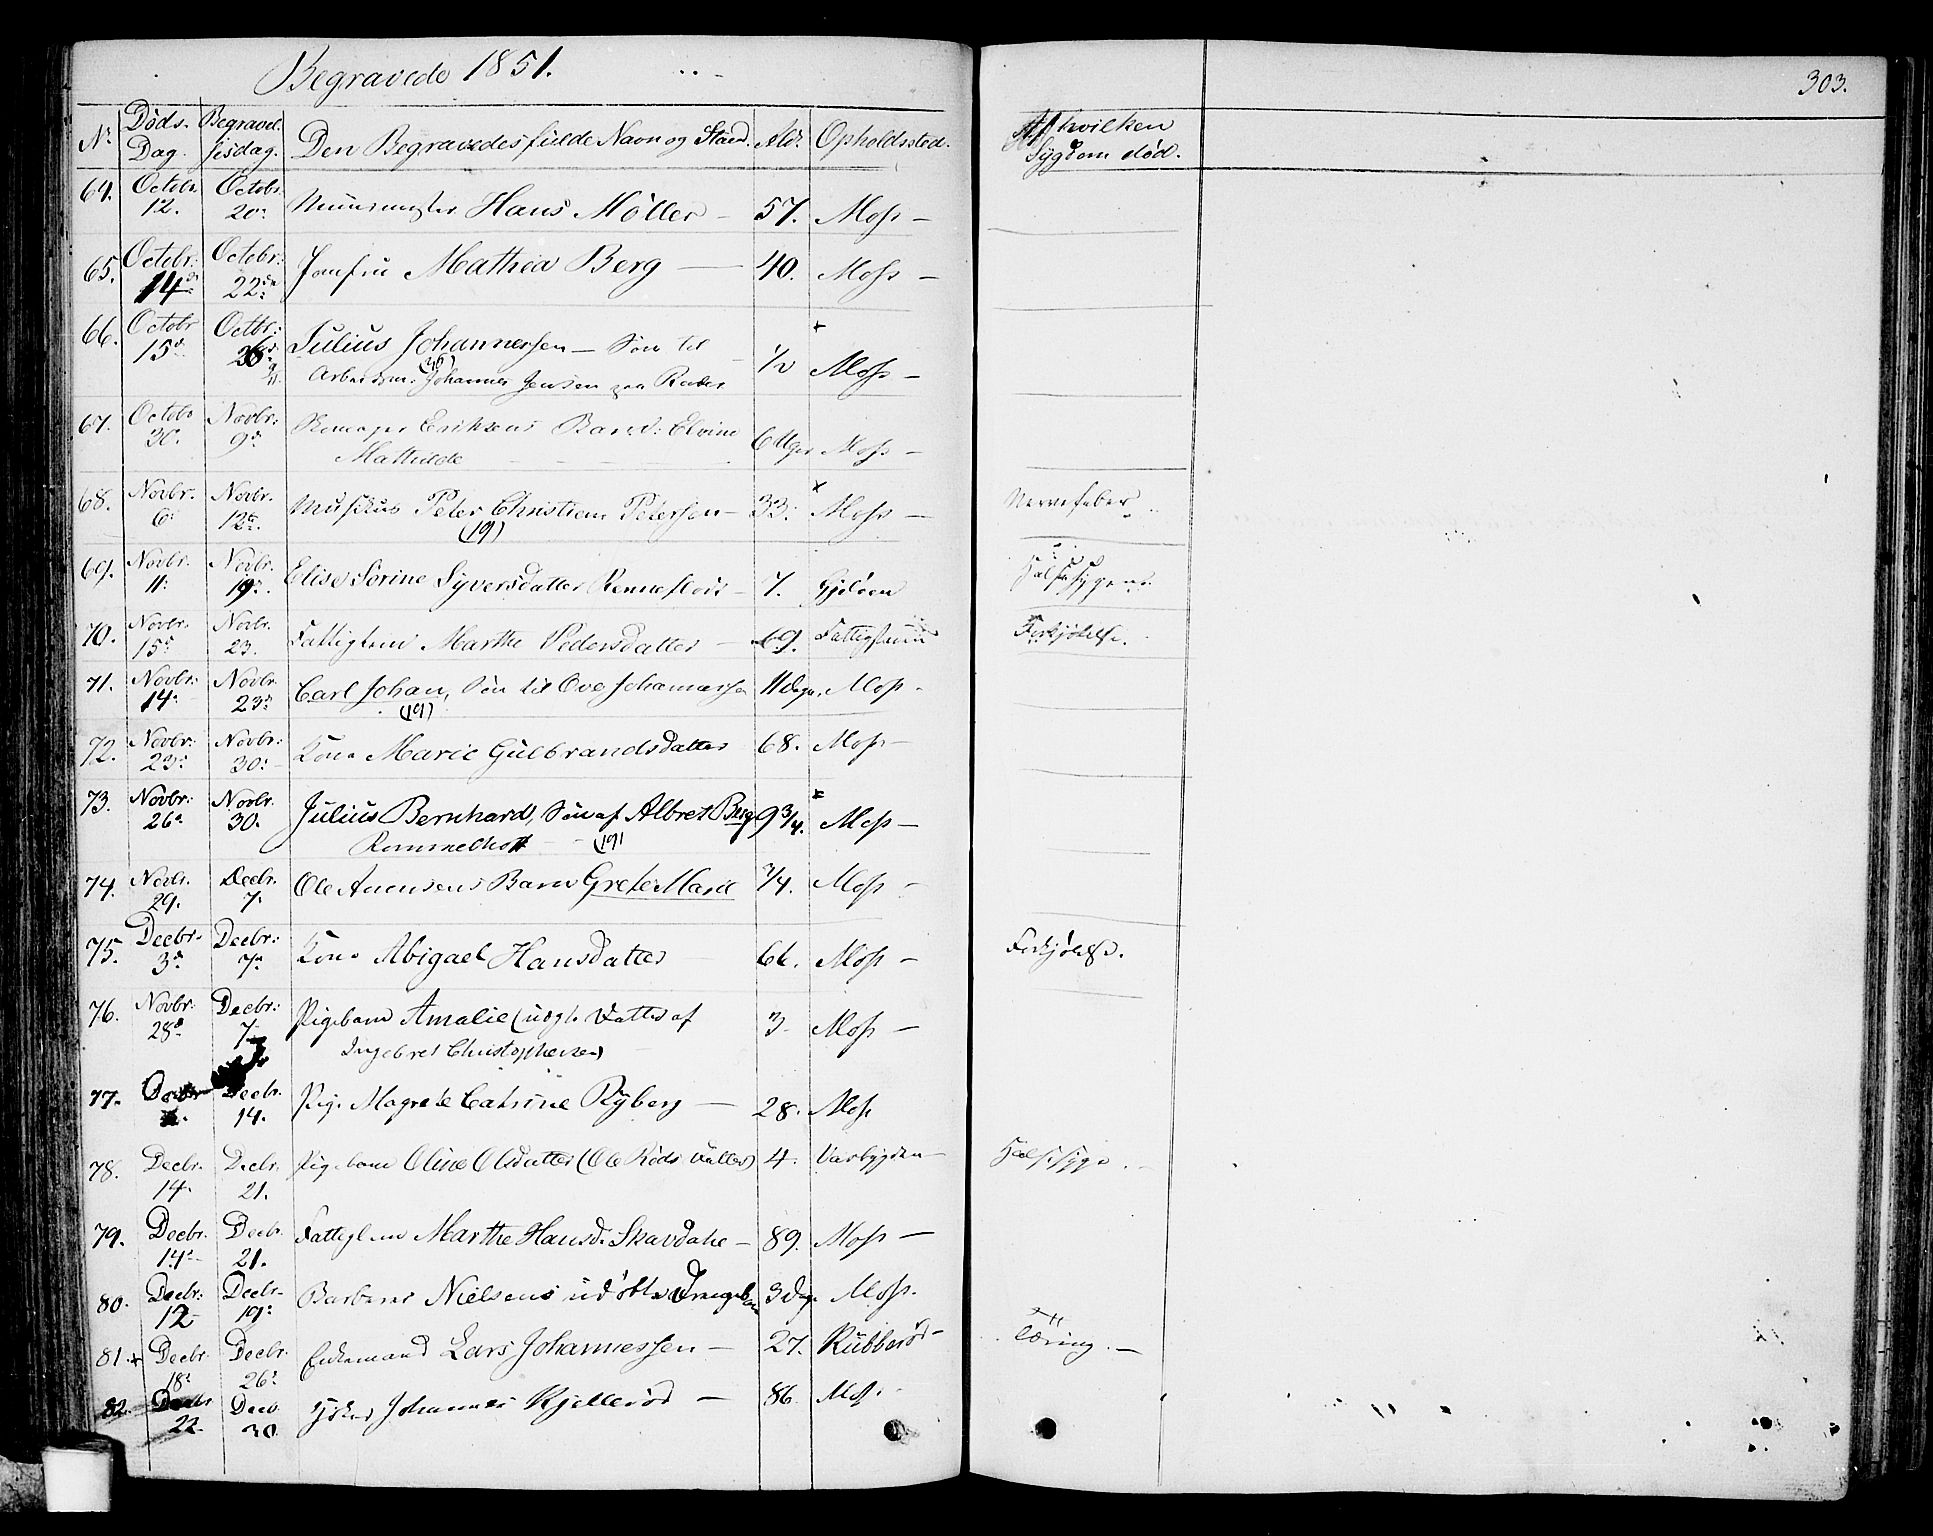 Begravede 1851.
303.
Nr. Døds- Dag. Begravelsesdag. Den Begravedes fulde Navn og Stand. Ald. Opholdssted. Af hvilken Sygdom død.
64. Octobr. 12. Octobr. 20. Hans Möller — 57. Moss —
65. Octobr: 14d Octobr: 22de Jomfru Mathea Berg — 40. Moss —
66. Octobr 15d Octbr: Julius Johannessen — Søn til 1/2 Moss —
Arbeidsm. Johannes Jensen paa
67. Octobr 30. Novbr: 9d Eriksens Barn: Elvine 6 Uger Moss —
Mathilde
68. Novbr. 6. Novbr. 12. Musikus Peter Christian Petersen — 33. Moss — Nervefeber
(19)
69. Novbr. 11. Novbr. 19. Elise Sorine Syversdatter 7. Gjelöen Halssygen
70. Novbr. 15d Novbr. 23. Fattiglem Marthe Pedersdatter — 69. Forkjölelse.
71. Novbr: 14. Novbr. 23d Carl Johan, Søn til Ove Johannessen 11 dage. Moss —
(19)
72. Novbr: 23d Novbr: 30. Kone Marie Gulbrandsdatter 68. Moss —
73. Novbr: 26. Novbr. 30. Julius Bernhard, Søn af Albret Berg 9 3/4. Moss —
(19)
74. Novbr. 29. Decbr. 7. Ole Anensens Barn Grete Marie 3/4. Moss —
75. Decbr. 3d Decbr: 7d Kone Abigael Hansdatter 66. Moss — Forkjölelse.
76. Novbr: 28d Decbr: 7 Pigebarn Amalie (uægte Datter af 3. Moss —
Ingebret Christophersen)
77. Decbr. 14. Pige Magrete Catrine Ryberg — 28. Moss
78. Decbr. 14. Decbr. 21. Pigebarn Oline Olsdatter (Ole Röds Datter) 4. Varbygden — Halssyge. —
79. Decbr. 14d Decbr. 21. Fattiglem Marthe Hansd. — 89. Moss —
80. Decbr: 12 Decbr. 19d Nielsens udöbte Drengebarn 3 Dage Moss.
81. + Decbr. 18d Decbr. 26d Enkemand Lars Johannessen — 27. Rubberöd — Tæring. —
82. Decbr 22. Decb 30. Johannes Kjelleröd — 86. Moss.